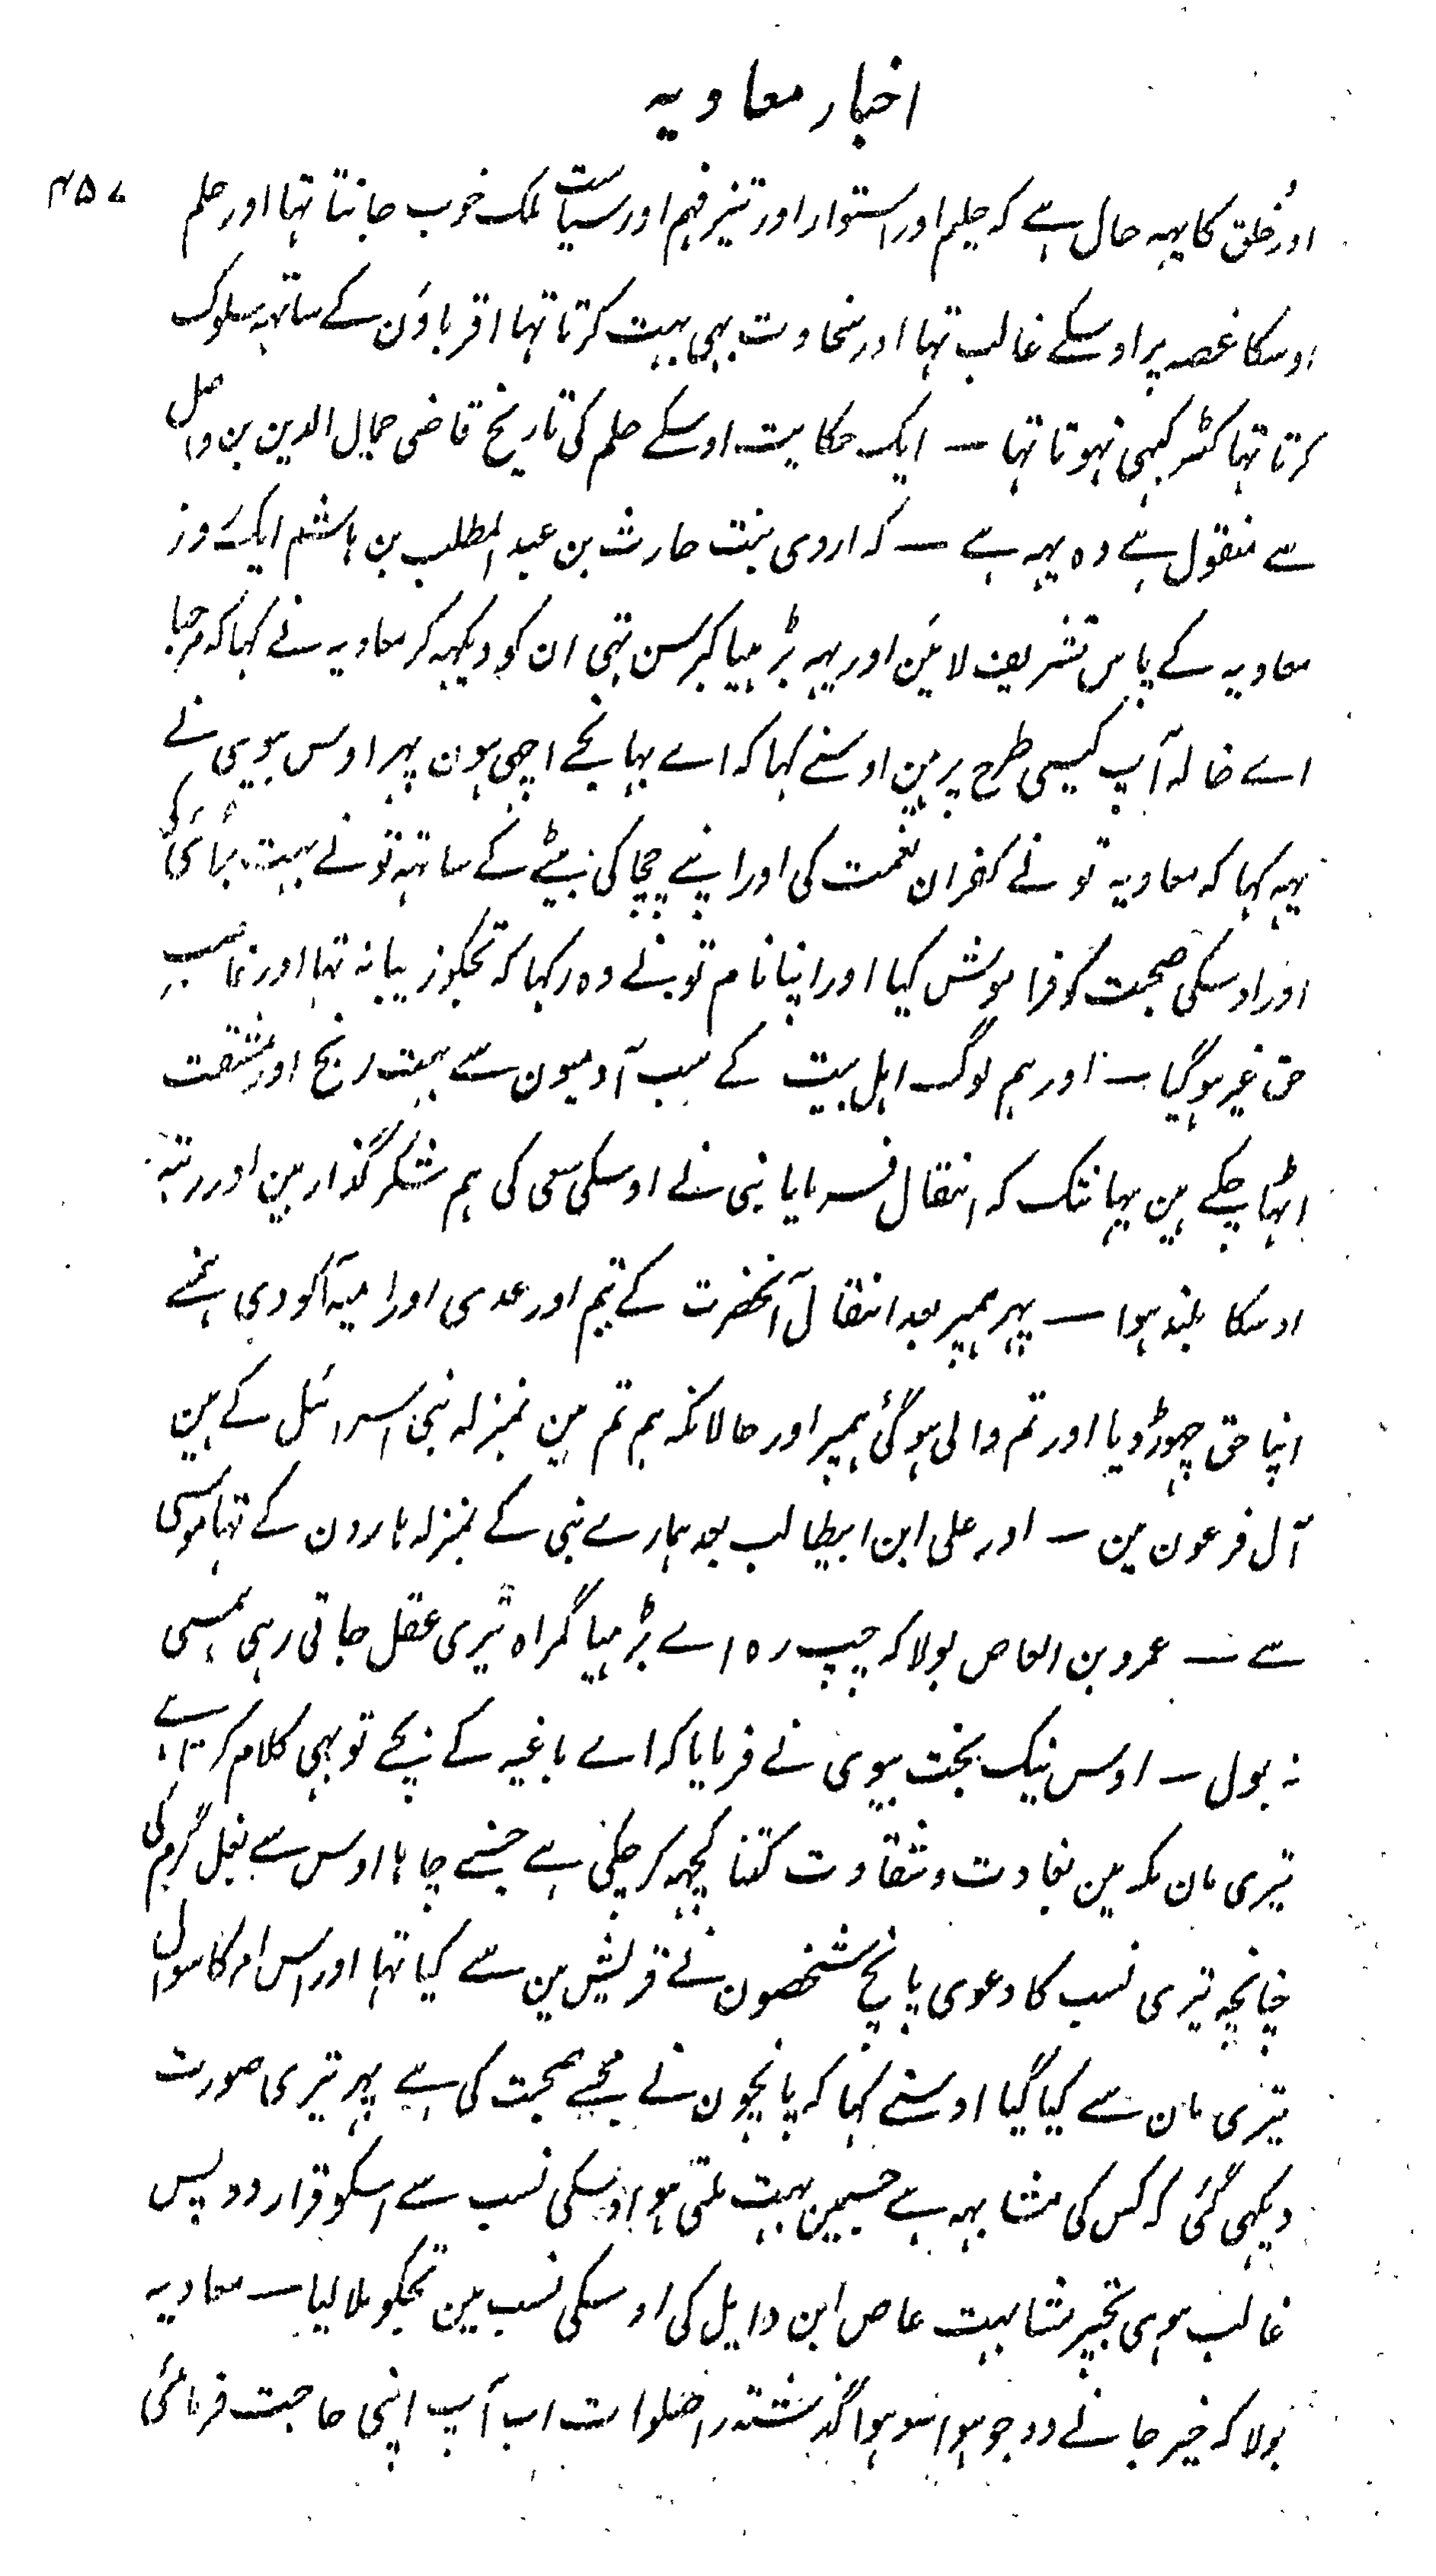 اخبار معاویہ
۴۵۷
اور خلق کا یہہ حال ہے کہ حلیم اور استوار اور تیز فہم اور سیاست ملک خوب جانتا تہا اور حلم
اوسکا غصہ پر اوسکے غالب تہا اور سخاوت بہی بہت کرتا تہا اقرباؤن کے ساتہہ سلوک
کرتا تہا کٹر کبہی نہوتا تہا — ایک حکایت اوسکے حلم کی تاریخ قاضی جمال الدین بن واصل
سے منقول ہے وہ یہہ ہے — کہ اروی بنت حارث بن عبد المطلب بن ہاشم ایک روز
معاویہ کے پاس تشریف لائین اور یہہ بڑہیا کبر سن تہی ان کو دیکہہ کر معاویہ نے کہا کہ مرحبا
اے خالہ آپ کیسی طرح پر ہین اوسنے کہا کہ اے بہانجے اچہی ہون پہر اوس بیوی نے
یہہ کہا کہ معاویہ تو نے کفران نعمت کی اور اپنے چچا کی بیٹے کے ساتہہ تو نے بہت برائی کی
اور اوسکی صحبت کو فراموش کیا اور اپنا نام تو نے وہ رکہا کہ تجکو زیبا نہ تہا اور غاصب
حق غیر ہو گیا — اور ہم لوگ اہل بیت کے سب آدمیون سے بہت رنج اور مشقت
اٹہا چکے ہین یہانتک کہ انتقال فرمایا نبی نے اوسکی سعی کی ہم شکر گذار ہین اور رتبہ
اوسکا بلند ہوا — پہر ہمپر بعد انتقال آنحضرت کے تیم اور عدی اور امیہ کودی ہنے
اپنا حق چہوڑ دیا اور تم والی ہو گئی ہمپر اور حالانکہ ہم تم مین بمنزلہ بنی اسرائیل کے ہین
آل فرعون مین — اور علی ابن ابیطالب بعد ہمارے نبی کے بمنزلہ ہارون کے تہا موسی
سے — عمرو بن العاص بولا کہ چپ رہ اے بڑہیا گمراہ تیری عقل جاتی رہی ہمسی
نہ بول — اوس نیک بخت بیوی نے فرمایا کہ اے باغیہ کے بچے تو بہی کلام کرتا ہے
تیری مان مکہ مین بغاوت و شقاوت کتنا کچہہ کر چکی ہے جسنے چاہا اوس سے بغل گرم کی
چنانچہ تیری نسب کا دعوی پانچ شخصون نے قریش مین سے کیا تہا اور اس امر کا سوال
تیری مان سے کیا گیا اوسنے کہا کہ پانچون نے مجہسے صحبت کی ہے پہر تیری صورت
دیکہی گئی کہ کس کی مشابہہ ہے جسمین بہت ملتی ہو اوسکی نسب سے اسکو قرار دو پس
غالب ہوی تجپر مشابہت عاص ابن وایل کی اوسکی نسب مین تجکو ملا لیا — معاویہ
بولا کہ خیر جانے دو جو ہوا سو ہوا گذشتہ را صلوات اب آپ اپنی حاجت فرمائی